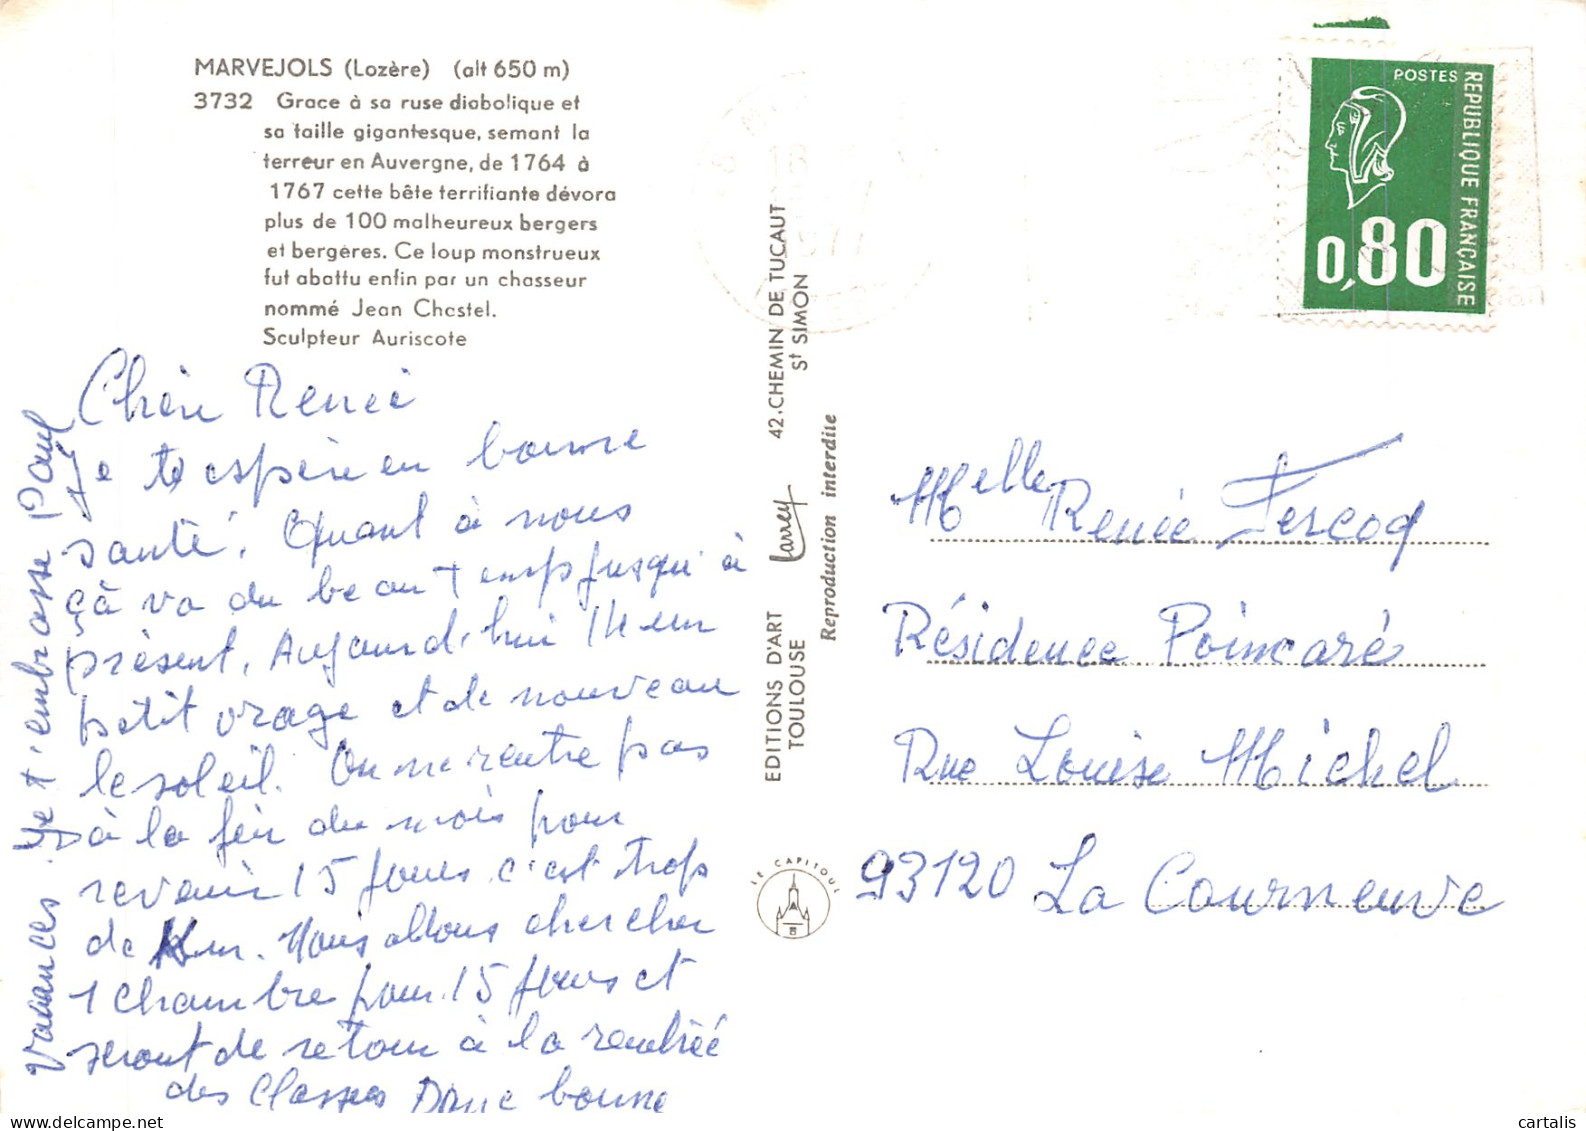 MARVEJOLS (Lozère) (alt 650 m)
3732 Grace à sa ruse diabolique et
sa taille gigantesque, semant la
terreur en Auvergne, de 1764 à
1767 cette bête terrifiante dévora
plus de 100 malheureux bergers
et bergères. Ce loup monstrueux
fut abattu enfin par un chasseur
nommé Jean Chastel.
Sculpteur Auriscote
Chère Renée
Je te espère en bonne
santé. Quant à nous
çà va du beau temps jusqu'à
présent. Aujourd'hui 14 un
petit orage et de nouveau
le soleil. On ne rentre pas
à la fin du mois pour
revenir 15 jours c'est trop
de Km. Nous allons chercher
1 chambre pour 15 jours et
seront de retour à la rentrée
des Classes Donc bonne
Vacances. Je t'embrasse Paul
EDITIONS D'ART Larrey 42.CHEMIN DE TUCAUT
TOULOUSE St SIMON
Reproduction interdite
LE CAPITOUL
POSTES
REPUBLIQUE FRANÇAISE
0,80
Melle Renée Fercoq
Résidence Poincaré
Rue Louise Michel
93120 La Courneuve
www.delcampe.net
cartalis